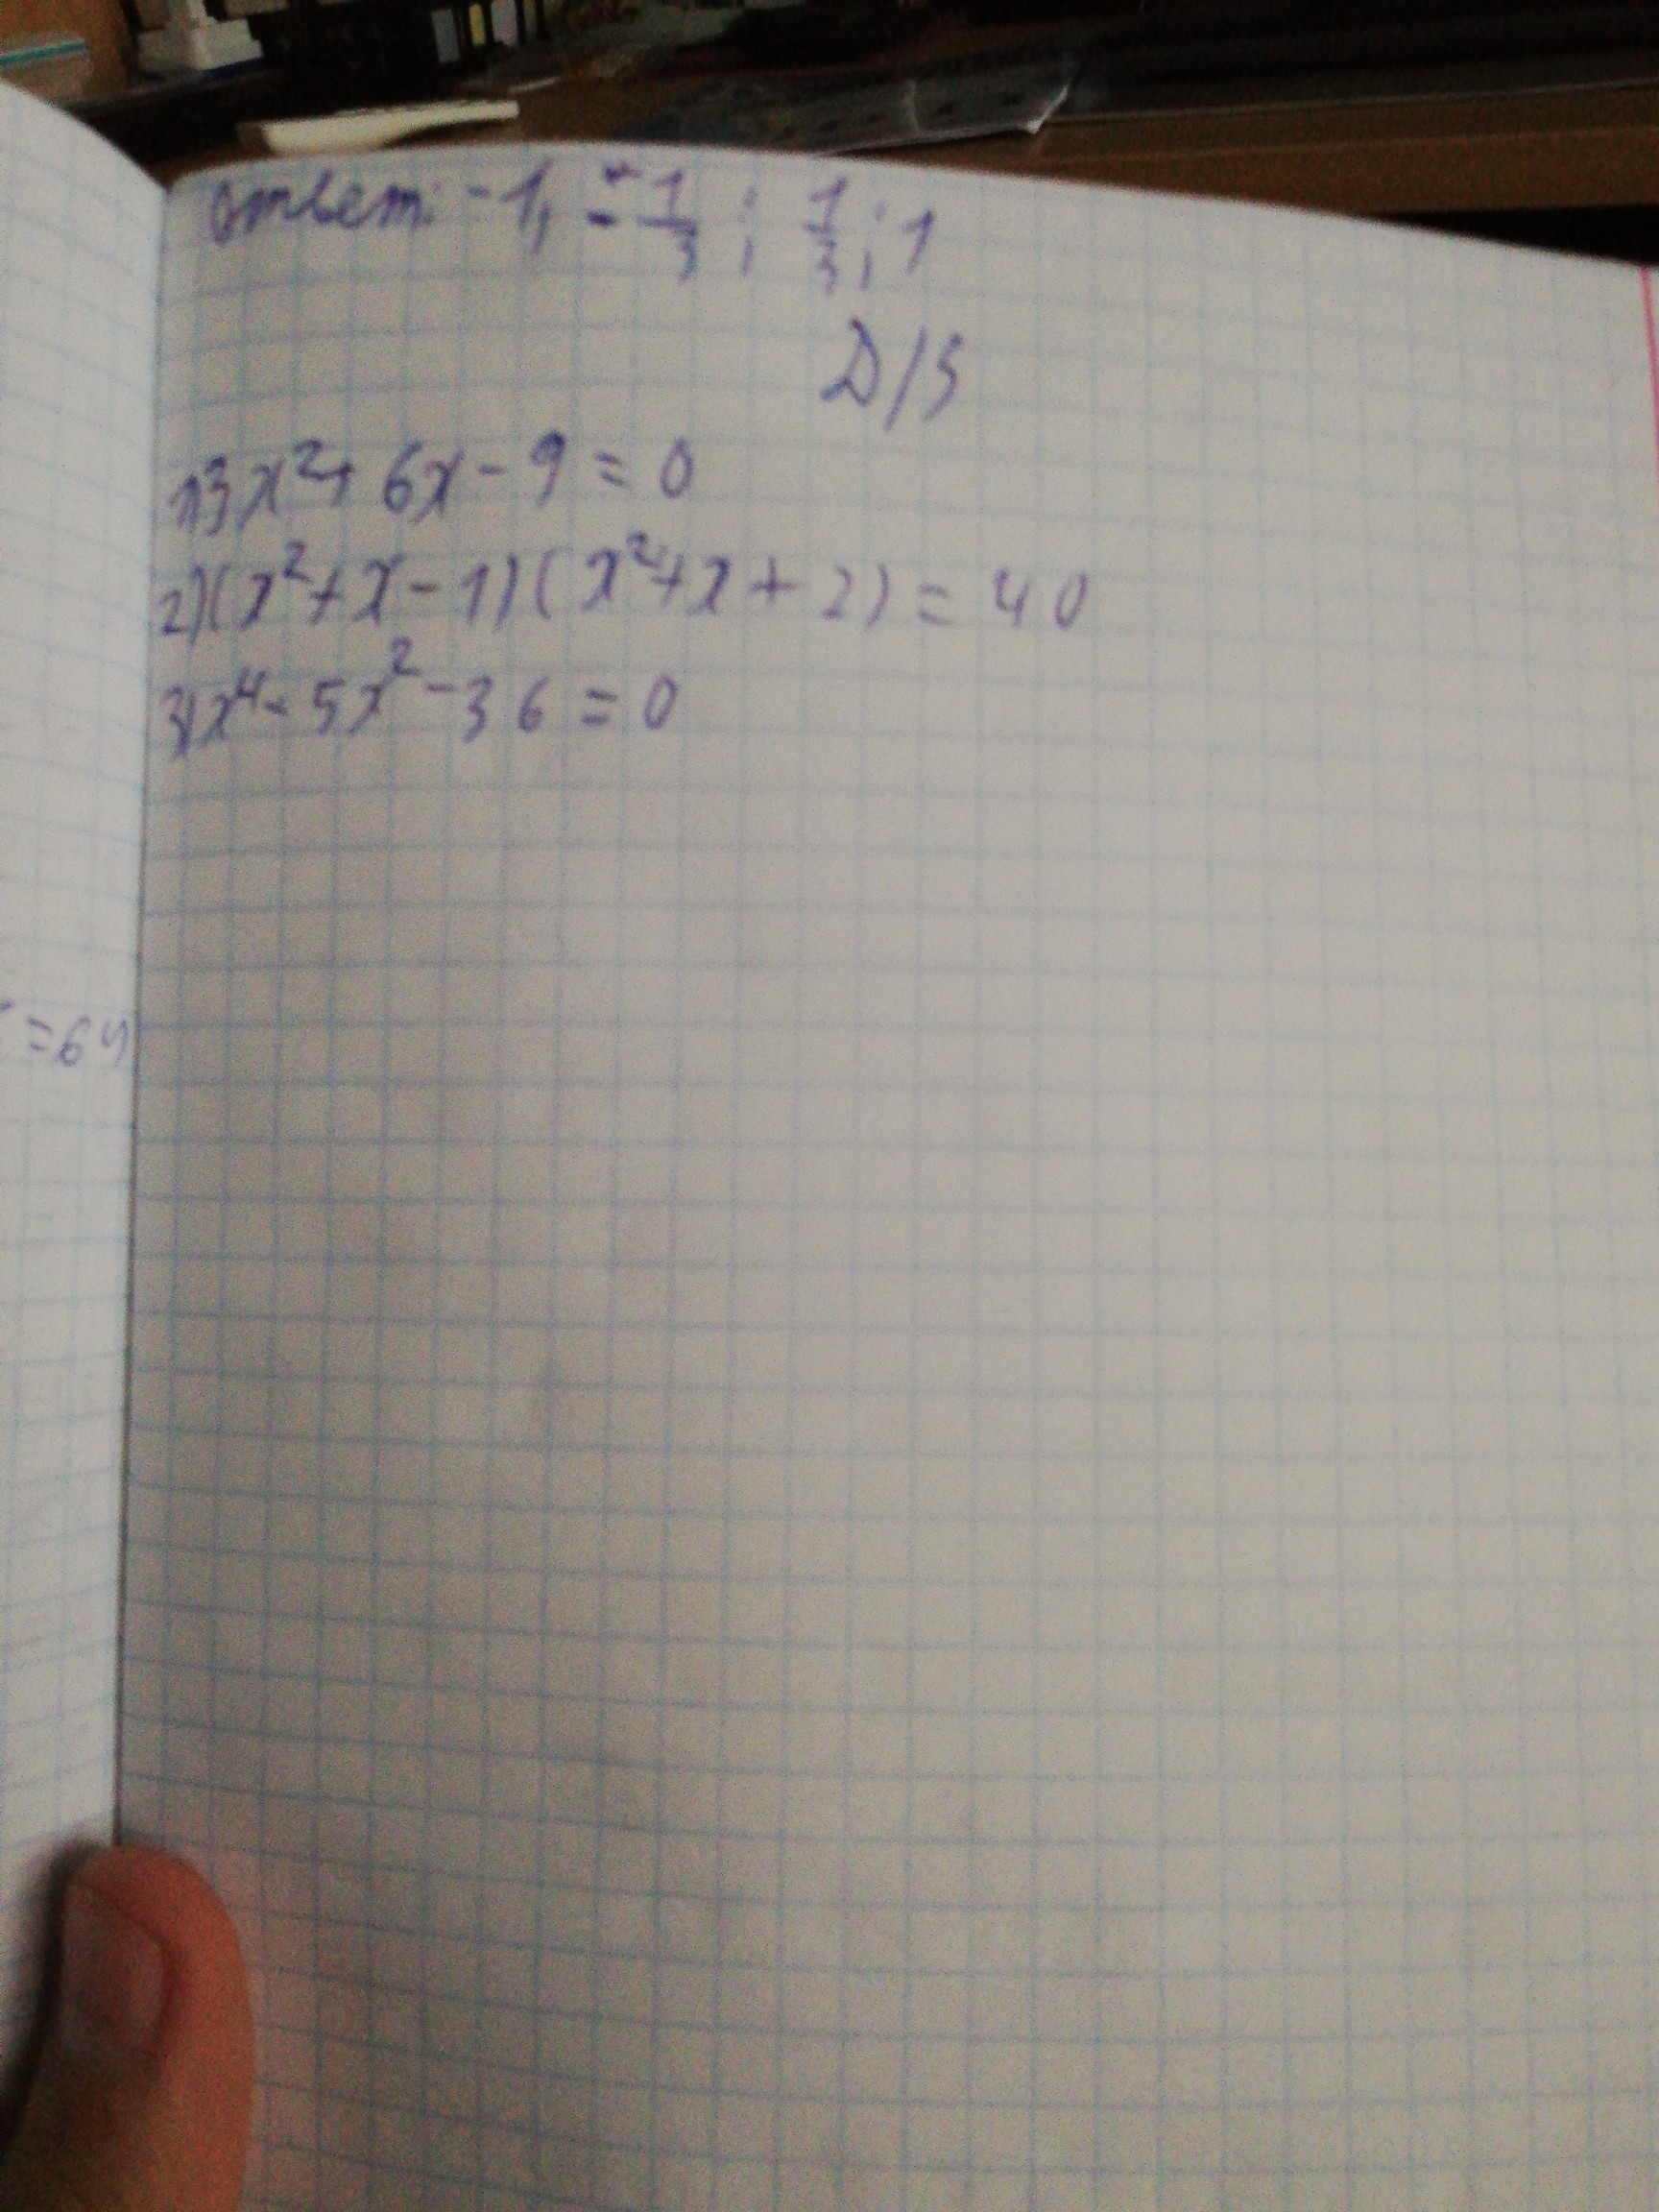 ответ: -1; -1/3; 1/3; 1
Д/З
1) 3x²+6x-9=0
2) (x²+x-1)(x²+x+2)=40
3) x⁴-5x²-36=0
=64